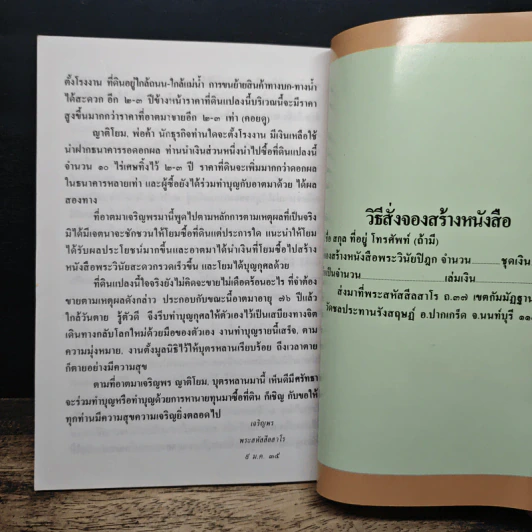 ตั้งโรงงาน ที่ดินอยู่ใกล้ถนน-ใกล้แม่น้ำ การขนย้ายสินค้าทางบก-ทางน้ำ
ได้สะดวก อีก ๒-๓ ปีข้างหน้าราคาที่ดินแปลงนี้บริเวณนี้จะมีราคา
สูงขึ้นมากกว่าราคาที่อาตมาขายอีก ๒-๓ เท่า (คอยดู)
ญาติโยม. พ่อค้า นักธุรกิจท่านใดจะตั้งโรงงาน มีเงินเหลือใช้
นำฝากธนาคารรอดอกผล ท่านนำเงินส่วนหนึ่งนำไปซื้อที่ดินแปลงนี้
จำนวน ๑๐ ไร่เศษทิ้งไว้ ๒-๓ ปี ราคาที่ดินจะเพิ่มมากกว่าดอกผล
ในธนาคารหลายเท่า และผู้ซื้อยังได้ร่วมทำบุญกับอาตมาด้วย ได้ผล
สองทาง
ที่อาตมาเจริญพรมานี้พูดไปตามหลักการตามเหตุผลที่เป็นจริง
มิได้มีเจตนาจะชักชวนให้โยมซื้อที่ดินแต่ประการใด แนะนำให้โยม
ได้รับผลประโยชน์มากขึ้นและอาตมาได้นำเงินที่โยมซื้อไปสร้าง
หนังสือพระวินัยสะดวกรวดเร็วขึ้น และโยมได้บุญกุศลด้วย
ที่ดินแปลงนี้ใจจริงยังไม่คิดจะขายไม่เดือดร้อนอะไร ที่จำต้อง
ขายตามเหตุผลดังกล่าว ประกอบกับขณะนี้อาตมาอายุ ๗๖ ปีแล้ว
ใกล้วันตาย รู้ตัวดี จึงรีบทำบุญกุศลให้ตัวเองไว้เป็นเสบียงทางจิต
เดินทางกลับโลกใหม่ด้วยมือของตัวเอง งานทำบุญรายนี้เสร็จ. ตาม
ความมุ่งหมาย. งานตั้งมูลนิธิไว้ให้บุตรหลานเรียบร้อย ถึงเวลาตาย
ก็ตายอย่างมีความสุข
ตามที่อาตมาเจริญพร ญาติโยม. บุตรหลานมานี้ เห็นดีมีศรัทธา
จะร่วมทำบุญหรือทำบุญด้วยการหานายทุนมาซื้อที่ดิน ก็เชิญ กับขอให้
ทุกท่านมีความสุขความเจริญยิ่งตลอดไป
เจริญพร
พระสหัสสีลสาโร
๕ ม.ค. ๓๕
วิธีสั่งจองสร้างหนังสือ
ชื่อ สกุล ที่อยู่ โทรศัพท์ (ถ้ามี)
สร้างหนังสือพระวินัยปิฎก จำนวน......ชุดเงิน
เป็นจำนวน..........เล่มเงิน
ส่งมาที่พระสหัสสีลสาโร ถ.๓๗ เขตกัมมัฏฐาน
วัดชลประทานรังสฤษฎ์ อ.ปากเกร็ด จ.นนทบุรี